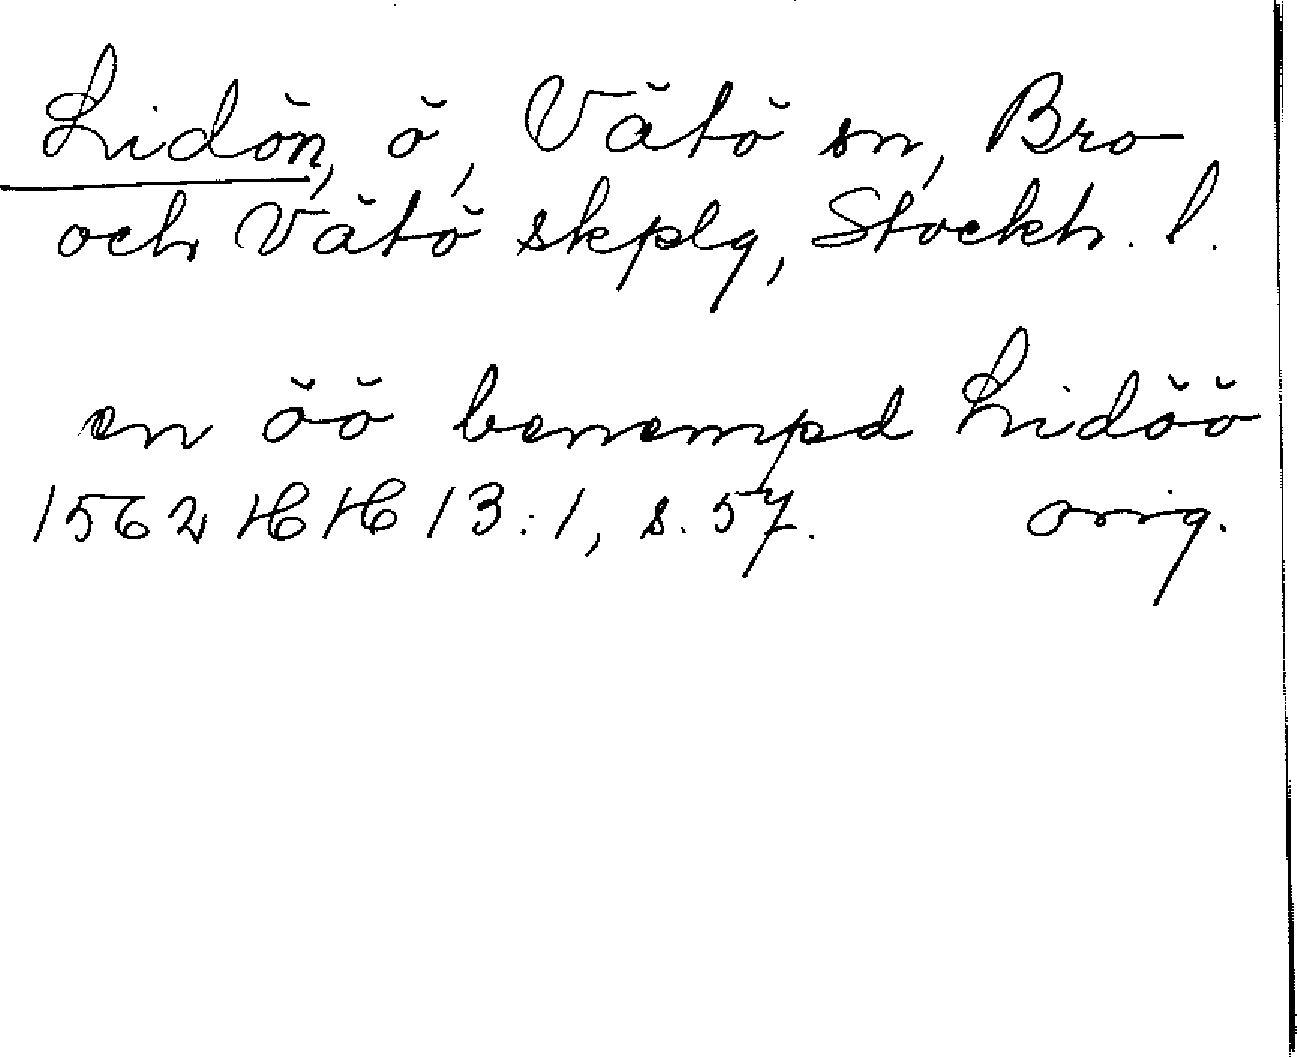 Lidön, ö, Vätö sn, Bro
och Vätö skplg, Stockh. l.
en öö benempd Lidöö
1562 HH 13:1, s. 57. orig.